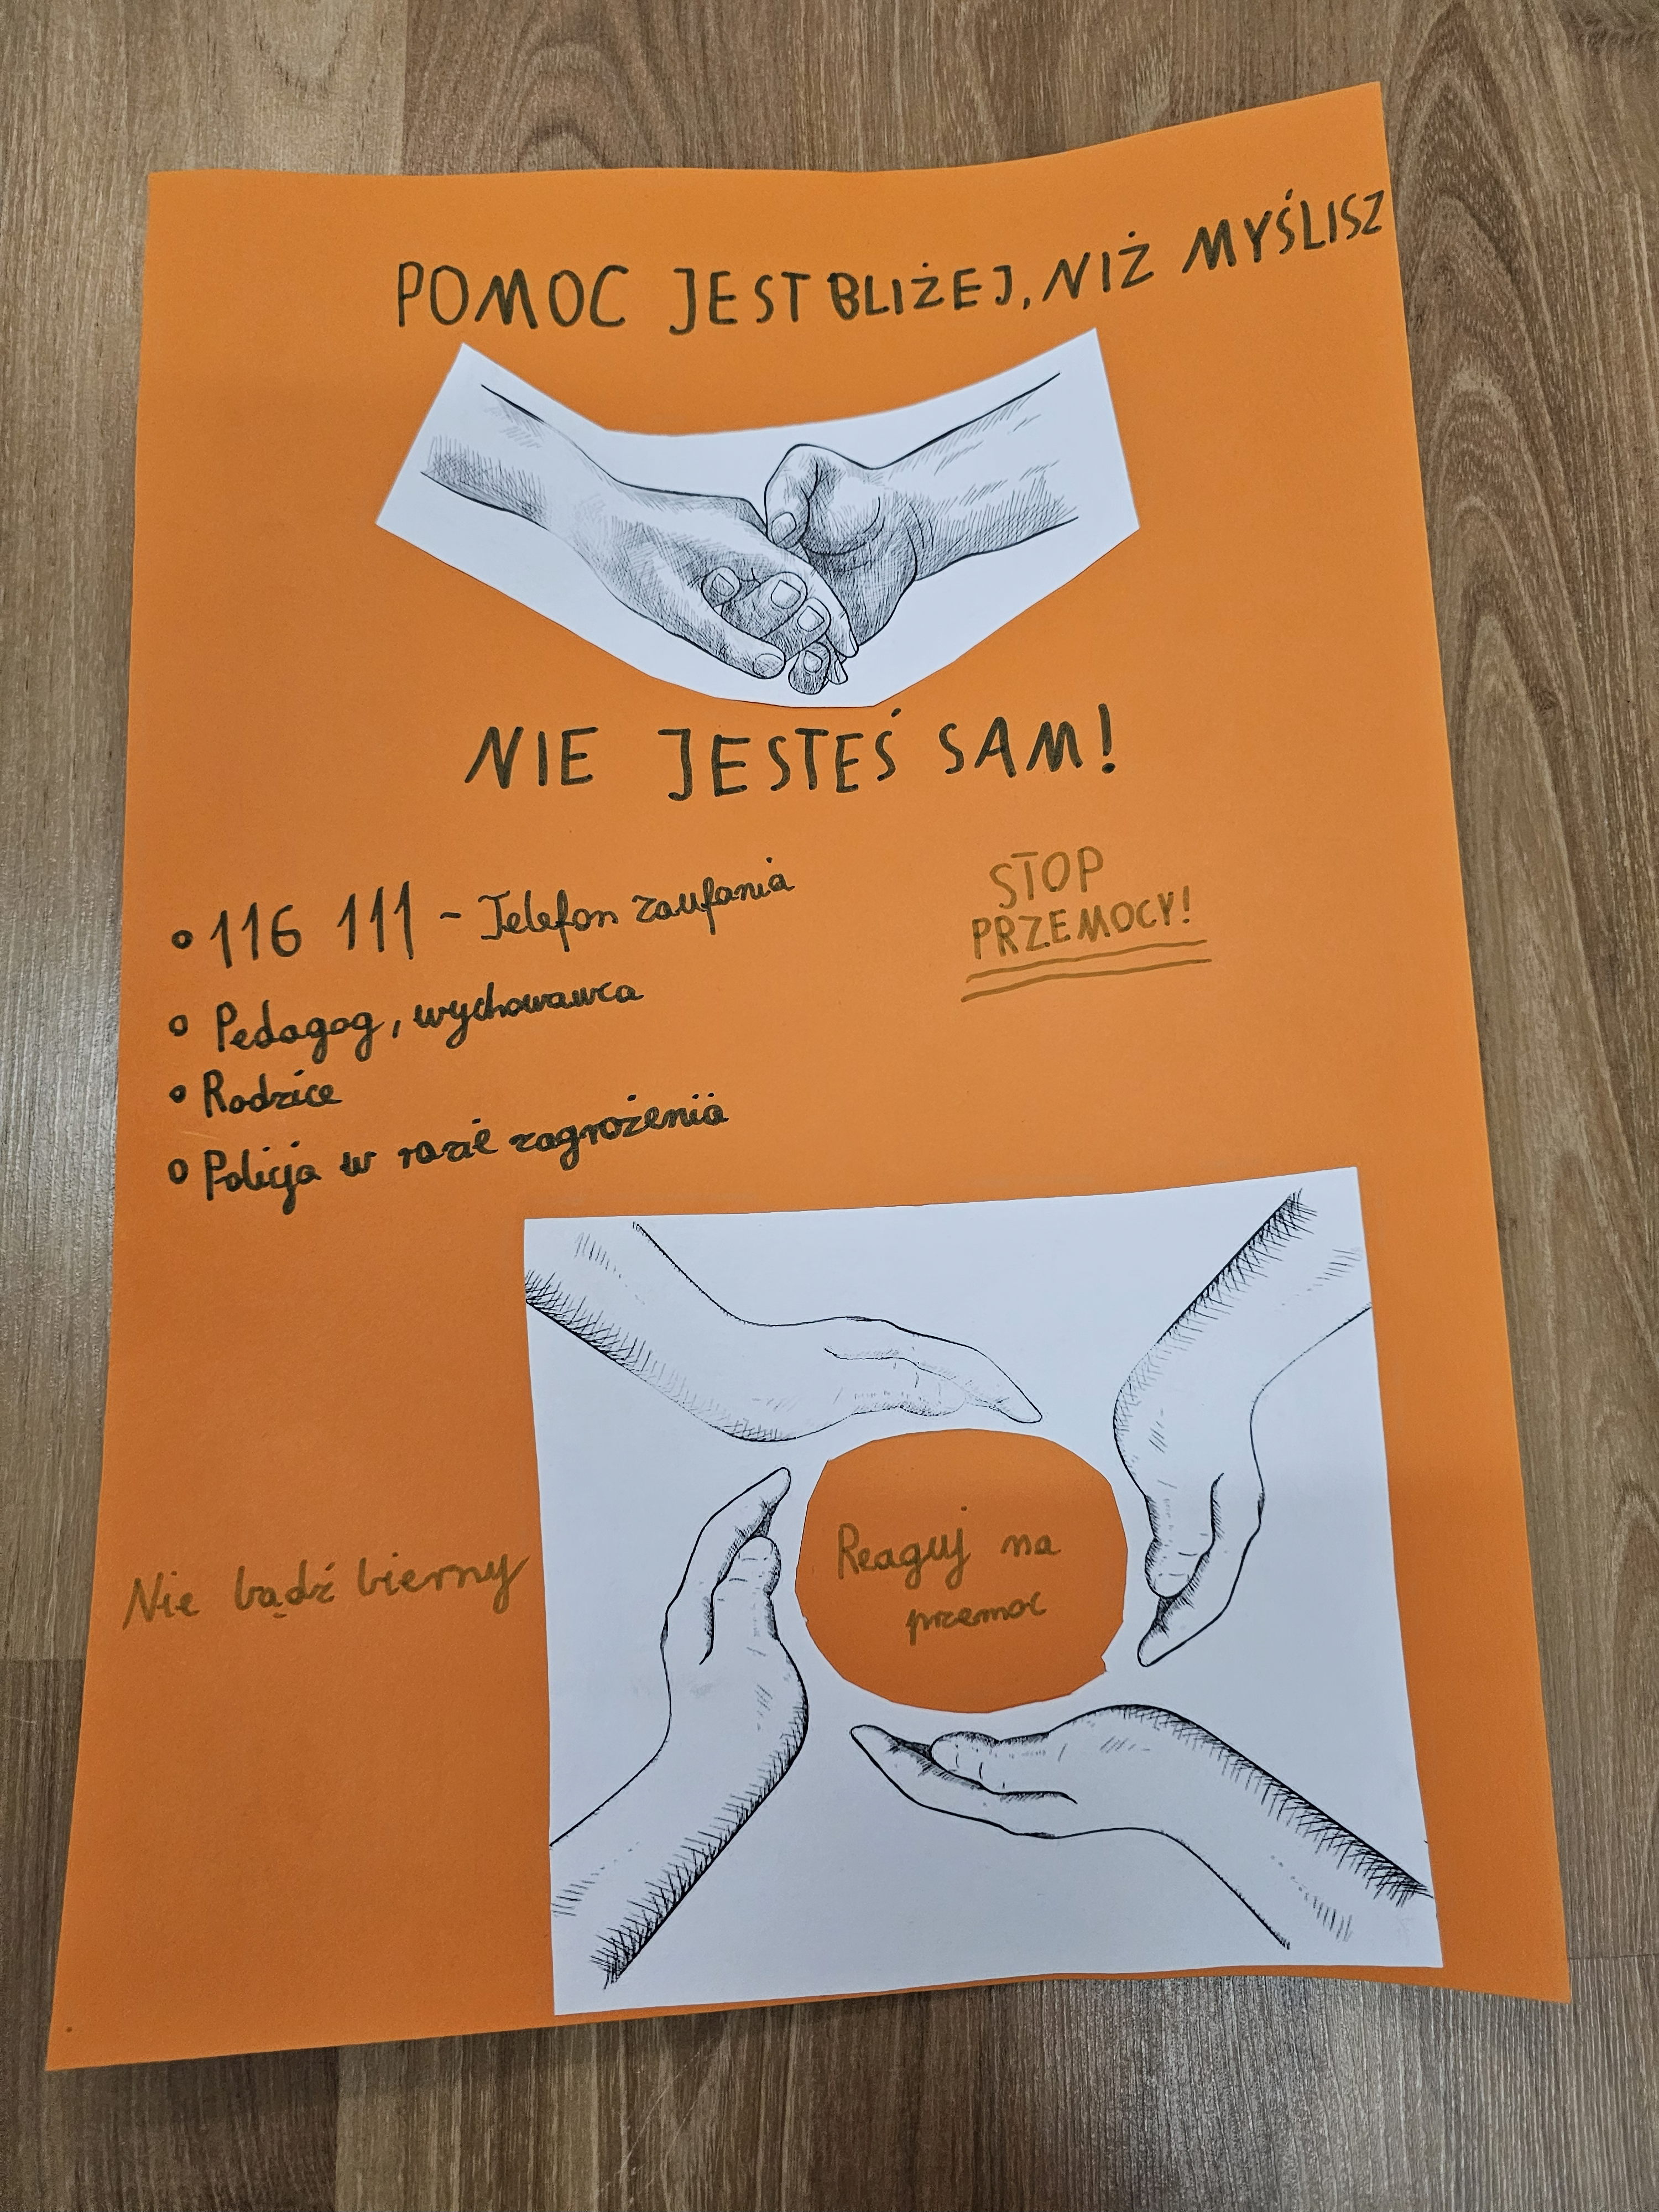 POMOC JEST BLIŻEJ, NIŻ MYŚLISZ
NIE JESTEŚ SAM!
• 116 111 - Telefon zaufania
• Pedagog, wychowawca
• Rodzice
• Policja w razie zagrożenia
STOP
PRZEMOCY!
Nie bądź bierny
Reaguj na
przemoc